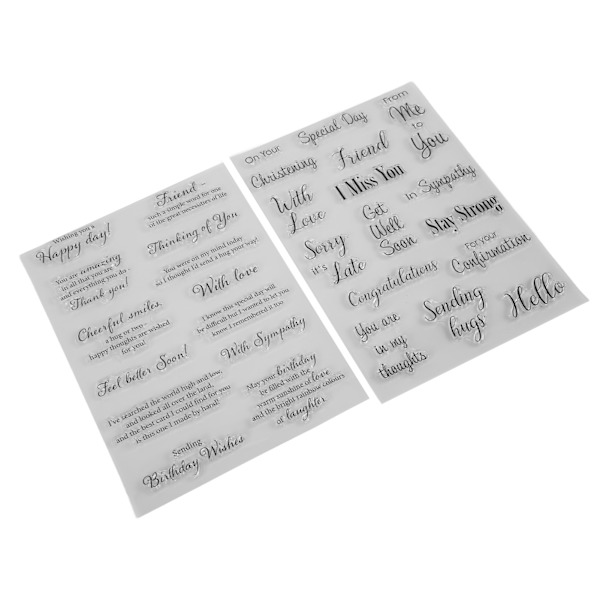 Wishing you a
Happy day!
Friend –
such a simple word for one
of the great necessities of life
You are amazing
in all that you are
and everything you do -
Thank you!
Thinking of You
You were on my mind today
so I thought I'd send a hug your way!
Cheerful smiles,
a hug or two –
happy thoughts are wished
for you!
With love
I know this special day will
be difficult but I wanted to let you
know I remembered it too
Feel better Soon!
With Sympathy
I've searched the world high and low,
and looked all over the land,
and the best card I could find for you
is this one I made by hand!
May your birthday
be filled with the
warm sunshine of love
and the bright rainbow colours
of laughter
Sending
Birthday Wishes
On Your
Special Day
From
Me
to
You
Christening
Friend
I Miss You
With
Love
Get
Well
Soon
in Sympathy
Stay Strong
Sorry
it's
Late
For your
Confirmation
Congratulations
You are
in my
thoughts
Sending
hugs
Hello